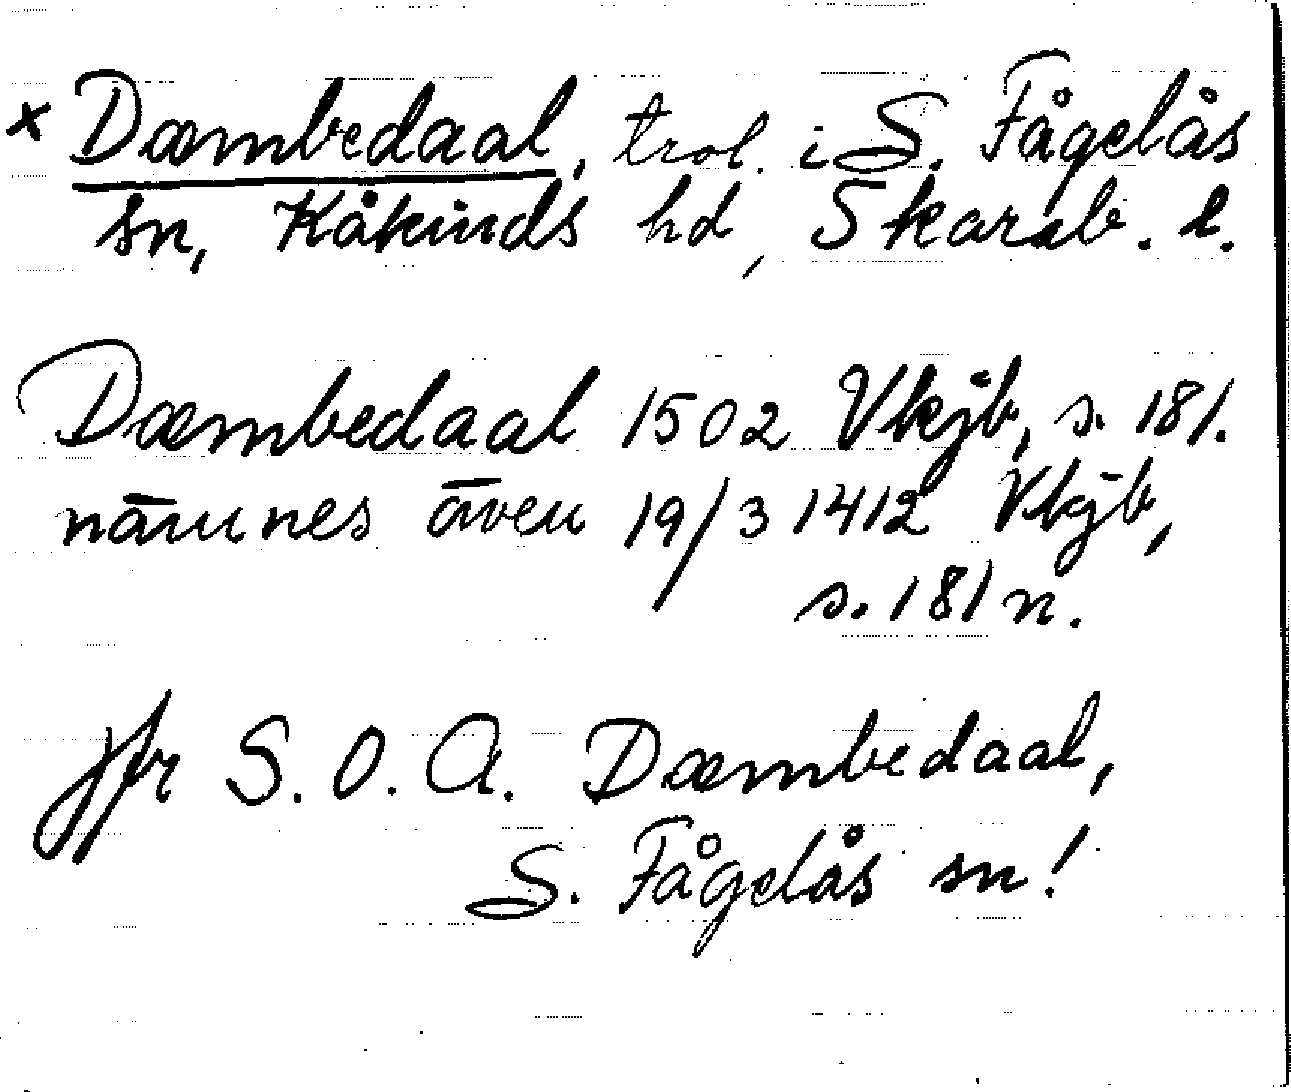 x Dæmbedaal, trol. i S. Fågelås
sn, Kåkinds hd, Skarab. l.
Dæmbedaal 1502 Vkjb, s. 181.
nämnes även 19/3 1412 Vkjb,
s. 181 n.
jfr S. O. A. Dæmbedaal,
S. Fågelås sn!